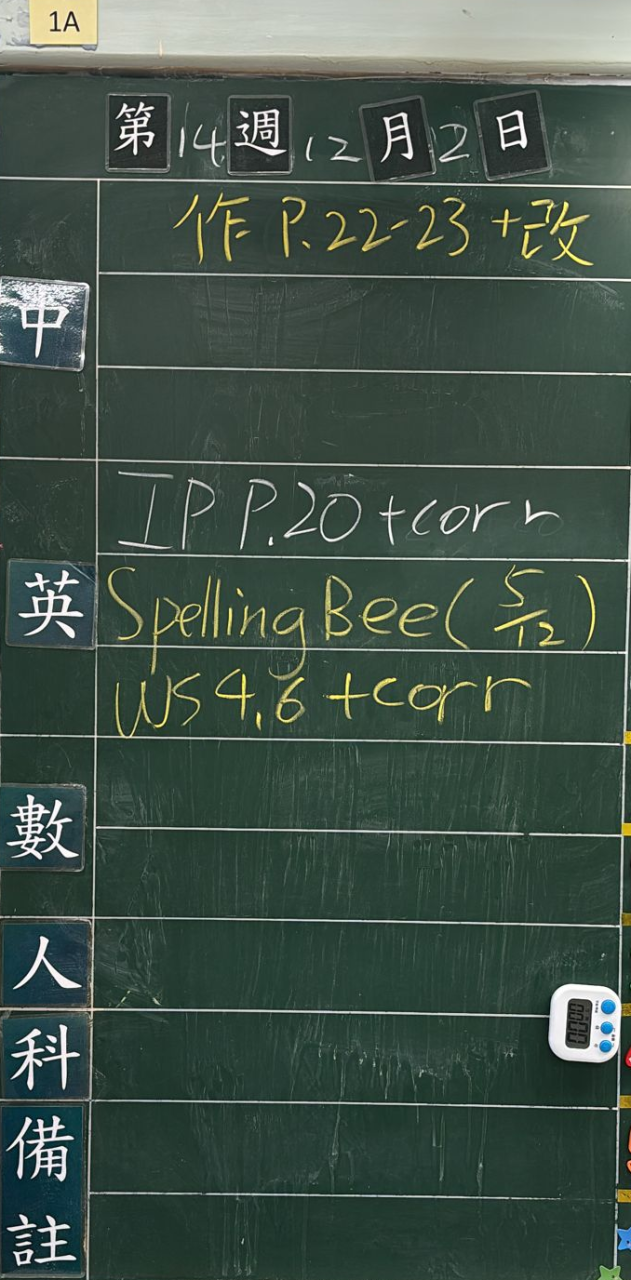 1A
第14週 12月2日
作 P.22-23 +改
中
IP P.20 +corr
英
Spelling Bee (5/12)
WS 4.6 +corr
數
人
科
備
註